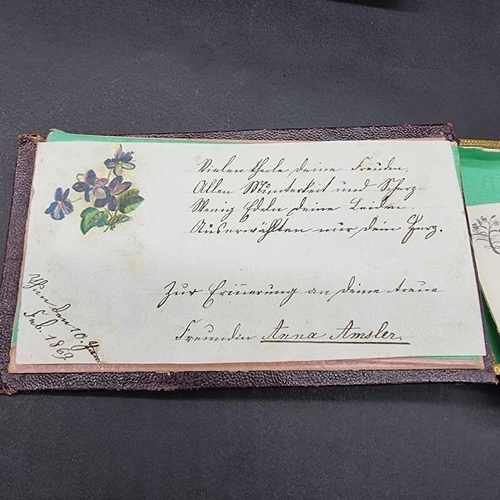 Vielen theile deine Freuden,
Allen Munterkeit und Scherz.
Wenig Edeln deine Leiden
Auserwählten nur dein Herz.
Zur Erinnerung an deine treue
Freundin Anna Amsler.
den 10. ten
Feb. 1869